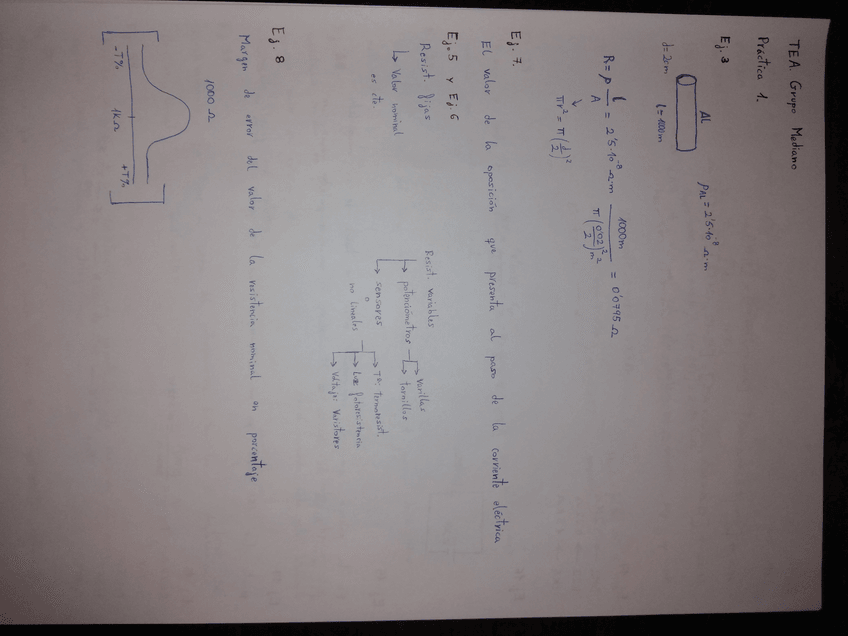 TEA Grupo Mediano
Práctica 1.
Ej. 3
AL
ρAL = 2'5·10⁻⁸ Ω·m
d=2cm
l=1000m
R = ρ l/A = 2'5·10⁻⁸ Ω·m 1000m / π(0'02/2)² m² = 0'0795 Ω
πr² = π(d/2)²
Ej. 7.
El valor de la oposición que presenta al paso de la corriente eléctrica
Ej. 5 y Ej. 6
Resist. fijas
↳ Valor nominal
es cte.
Resist. variables
↳ potenciómetros
→ varillas
→ tornillos
↳ sensores
o
no lineales
→ Tª: Termoresist.
→ Luz: fotoresistencia
→ Voltaje: Varistores
Ej. 8
Margen de error del valor de la resistencia nominal en porcentaje
1000 Ω
-T% 1KΩ +T%